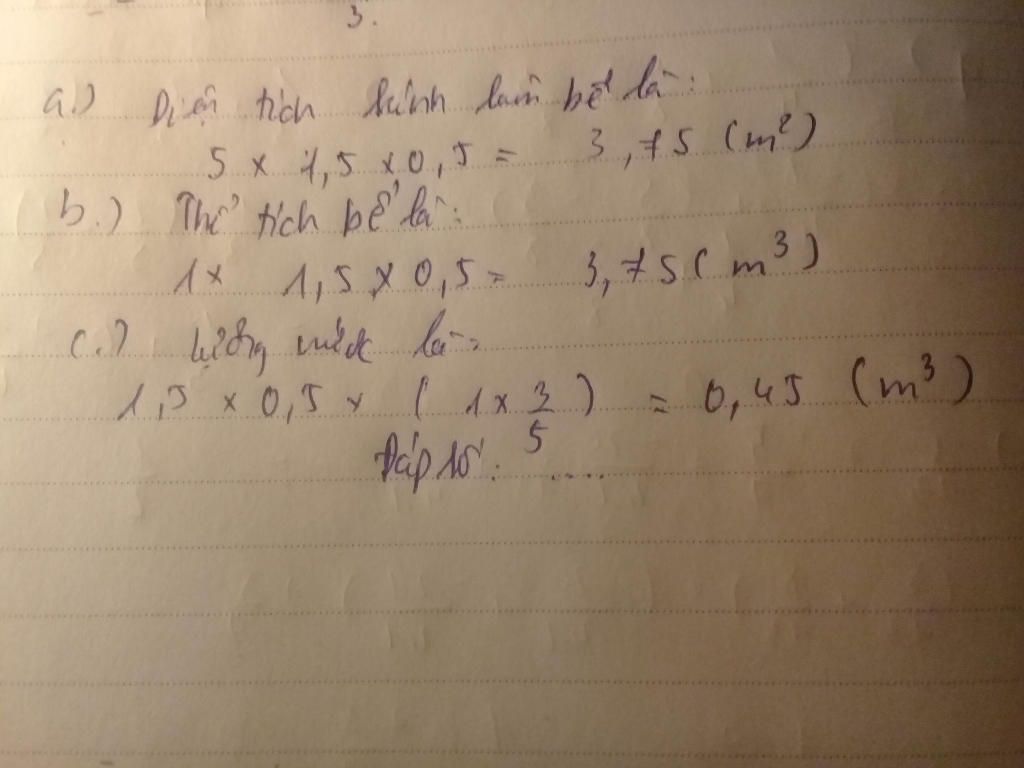 3.
a.) Diện tích kính làm bể là:
5 x 1,5 x 0,5 = 3,75 (m²)
b.) Thể tích bể là:
1 x 1,5 x 0,5 = 3,75 (m³)
c.) Lượng nước là:
1,5 x 0,5 x (1 x 3/5) = 0,45 (m³)
Đáp số: ....